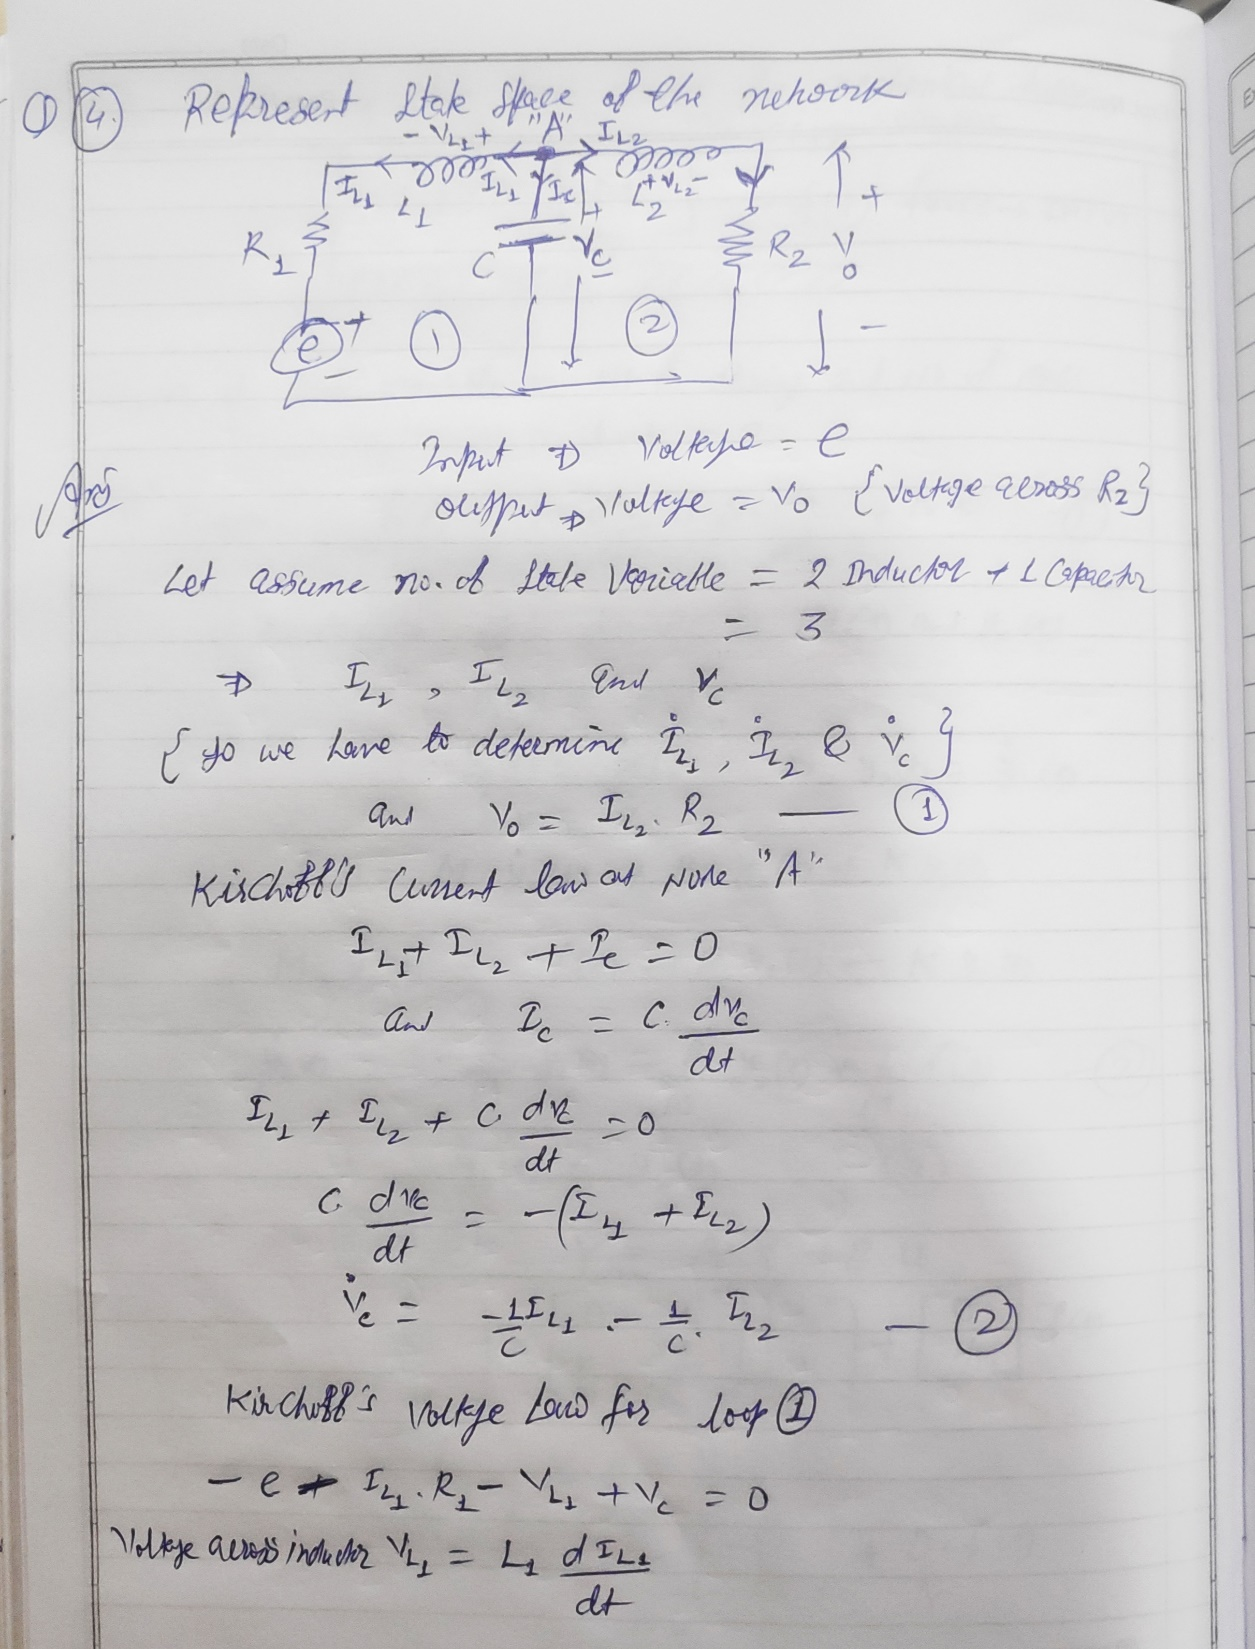 Q 4. Represent State Space of the network
- VL1 + "A" IL2
IL1 L1 IL1 Ic + L2 + VL2 -
R1 C Vc R2 V0 +
e + - 1 2 -
Input ⇒ Voltage = e
Output ⇒ Voltage = V0 {Voltage across R2}
Ans
Let assume no. of State Variable = 2 Inductor + 1 Capacitor
= 3
⇒ IL1, IL2 and Vc
{ So we have to determine İL1, İL2 & V̇c }
and V0 = IL2. R2 — 1
Kirchoff's Current law at Node "A"
IL1 + IL2 + Ic = 0
and Ic = C. dvc/dt
IL1 + IL2 + C dvc/dt = 0
C dvc/dt = -(IL1 + IL2)
V̇c = -1/C IL1 - 1/C. IL2 — 2
Kirchoff's Voltage Law for loop 1
- e - IL1. R1 - VL1 + Vc = 0
Voltage across inductor VL1 = L1 dIL1/dt